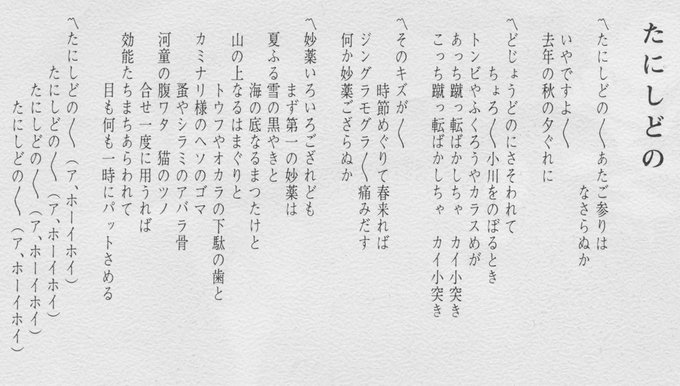 たにしどの
〽たにしどの〳〵あたご参りは
なさらぬか
いやですよ〳〵
去年の秋の夕ぐれに
〽どじょうどのにさそわれて
ちょろ〳〵小川をのぼるとき
トンビやふくろうやカラスめが
あっち蹴っ転ばかしちゃ　カイ小突き
こっち蹴っ転ばかしちゃ　カイ小突き
〽そのキズが〳〵
時節めぐりて春来れば
ジングラモグラ〳〵痛みだす
何か妙薬ござらぬか
〽妙薬いろいろござれども
まず第一の妙薬は
夏ふる雪の黒やきと
海の底なるまつたけと
山の上なるはまぐりと
トウフやオカラの下駄の歯と
カミナリ様のヘソのゴマ
蚤やシラミのアバラ骨
河童の腹ワタ　猫のツノ
合せ一度に用うれば
効能たちまちあらわれて
目も何も一時にパットさめる
〽たにしどの〳〵（ア、ホーイホイ）
たにしどの〳〵（ア、ホーイホイ）
たにしどの〳〵（ア、ホーイホイ）
たにしどの〳〵（ア、ホーイホイ）